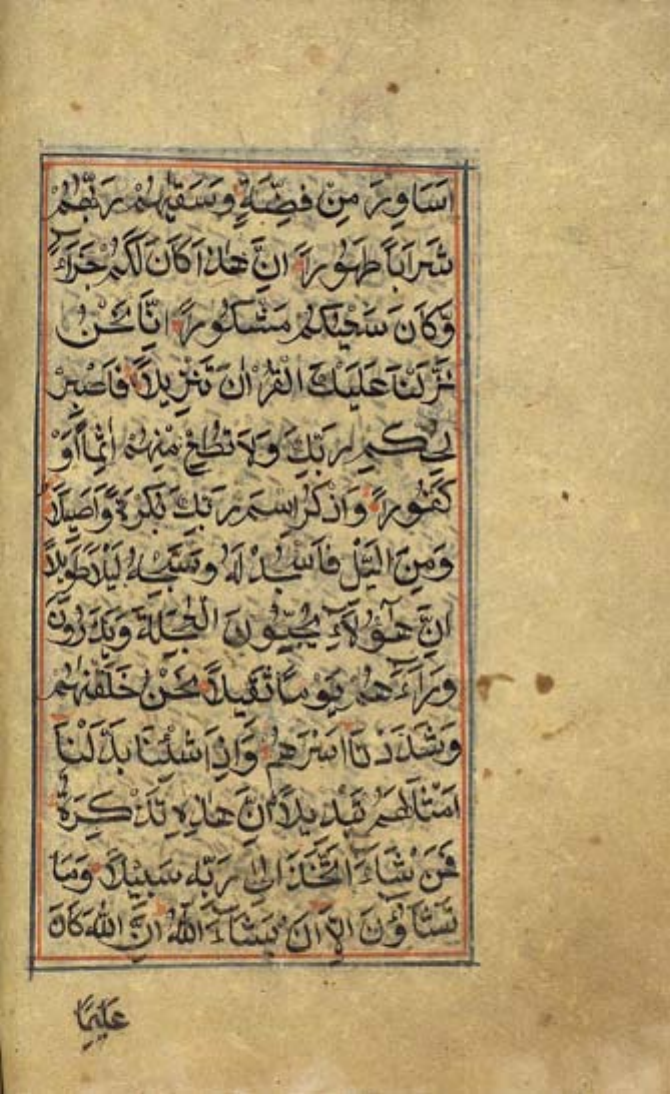 اَسَاوِرَ مِنْ فِضَّةٍ وَسَقٰيهُمْ رَبُّهُمْ
شَرَابًا طَهُورًا اِنَّ هٰذَا كَانَ لَكُمْ جَزَاءً
وَّكَانَ سَعْيُكُمْ مَشْكُورًا اِنَّا نَحْنُ
نَزَّلْنَا عَلَيْكَ الْقُرْاٰنَ تَنْزِيلًا فَاصْبِرْ
لِحُكْمِ رَبِّكَ وَلَا تُطِعْ مِنْهُمْ اٰثِمًا اَوْ
كَفُورًا وَاذْكُرِ اسْمَ رَبِّكَ بُكْرَةً وَّاَصِيلًا
وَمِنَ الَّيْلِ فَاسْجُدْ لَهُ وَسَبِّحْهُ لَيْلًا طَوِيلًا
اِنَّ هٰؤُلَاءِ يُحِبُّونَ الْعَاجِلَةَ وَيَذَرُونَ
وَرَاءَهُمْ يَوْمًا ثَقِيلًا نَحْنُ خَلَقْنٰهُمْ
وَشَدَدْنَا اَسْرَهُمْ وَاِذَا شِئْنَا بَدَّلْنَا
اَمْثَالَهُمْ تَبْدِيلًا اِنَّ هٰذِهِ تَذْكِرَةٌ
فَمَنْ شَاءَ اتَّخَذَ اِلٰى رَبِّهِ سَبِيلًا وَمَا
تَشَاؤُنَ اِلَّا اَنْ يَشَاءَ اللّٰهُ اِنَّ اللّٰهَ كَانَ
عَلِيمًا